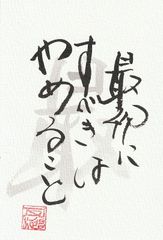 最初に
すべきは
やめること